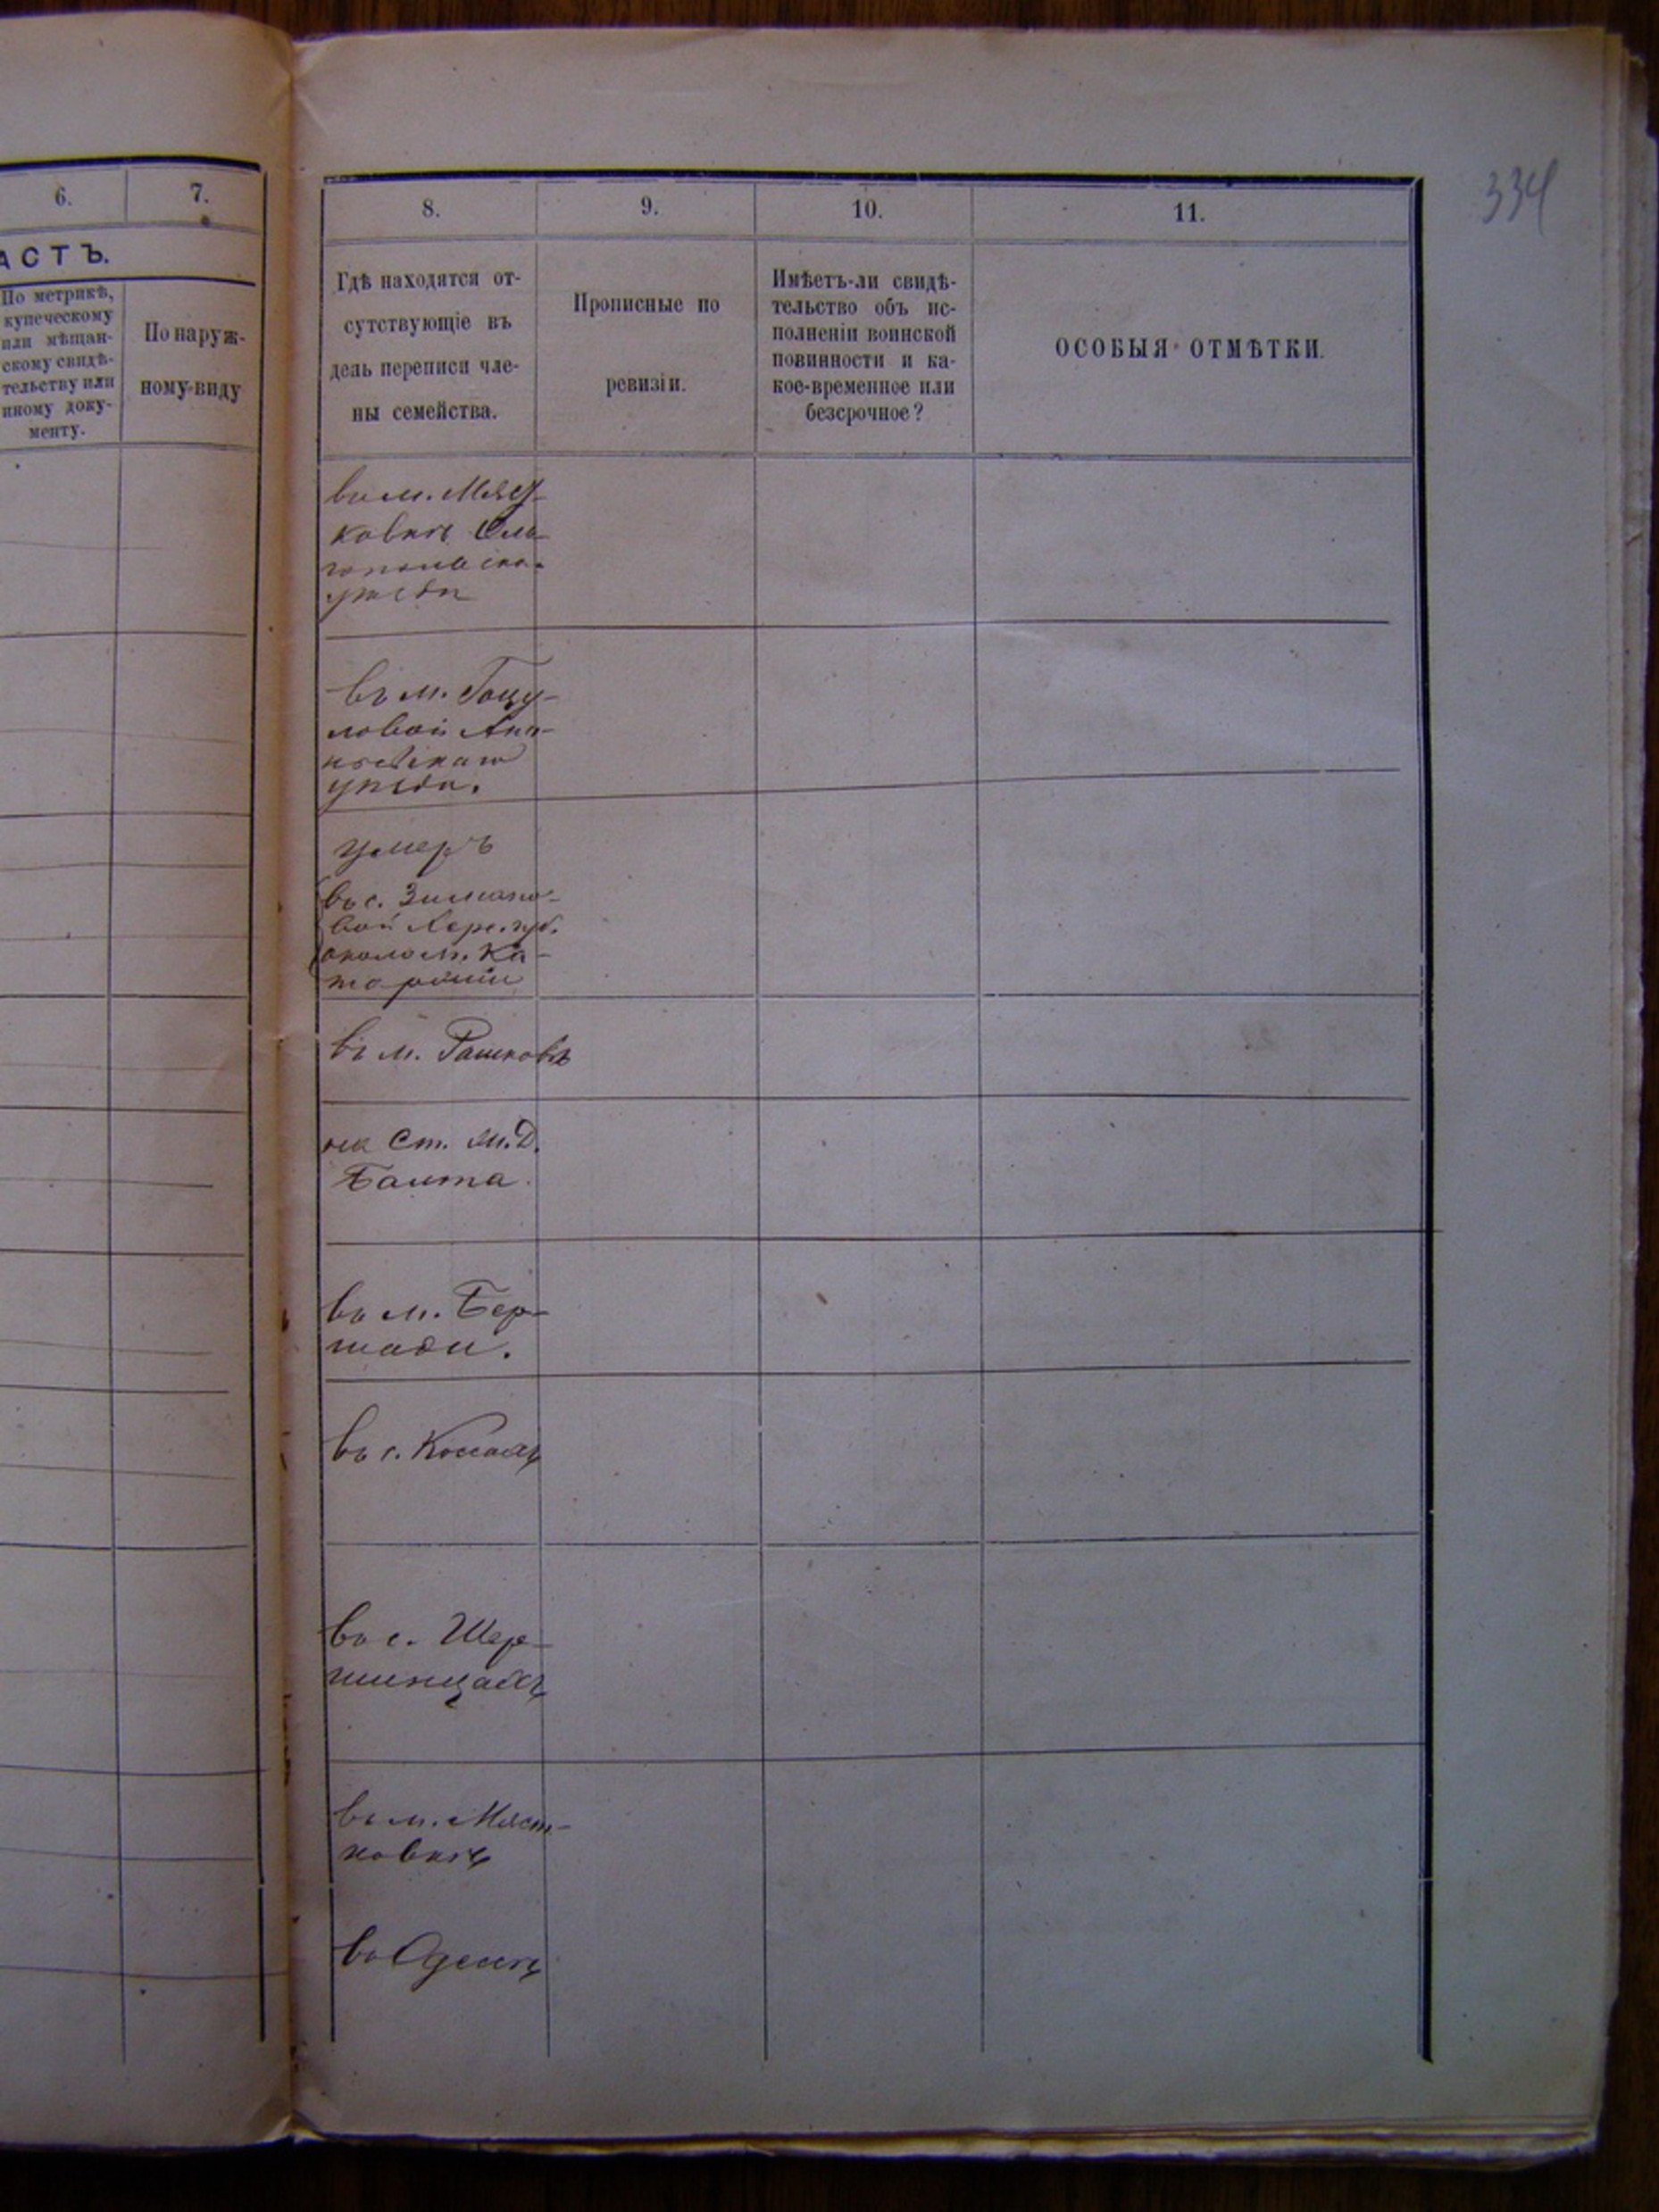 334
6.
7.
АСТЪ.
По метрикѣ,
купеческому
или мѣщан-
скому свидѣ-
тельству или
иному доку-
менту.
По наруж-
ному виду
8.
9.
10.
11.
Гдѣ находятся от-
сутствующіе въ
день переписи чле-
ны семейства.
Прописные по
ревизіи.
Имѣетъ-ли свидѣ-
тельство объ ис-
полненіи воинской
повинности и ка-
кое-временное или
безсрочное?
ОСОБЫЯ ОТМѢТКИ.
въ м. Мяст-
ковкѣ Оль-
гопольска.
уѣзда
въ м. Гоцу-
ловой Ана-
ньевскаго
уѣзда.
умеръ
въ с.
вой Херс. губ.
около м. Ка-
въ м. Рашковѣ
на Ст. ж. д.
Балта
въ м. Бер-
шади.
въ с.
въ с. Шер-
шинцахъ
въ м. Мяст-
ковкѣ
въ Одессѣ